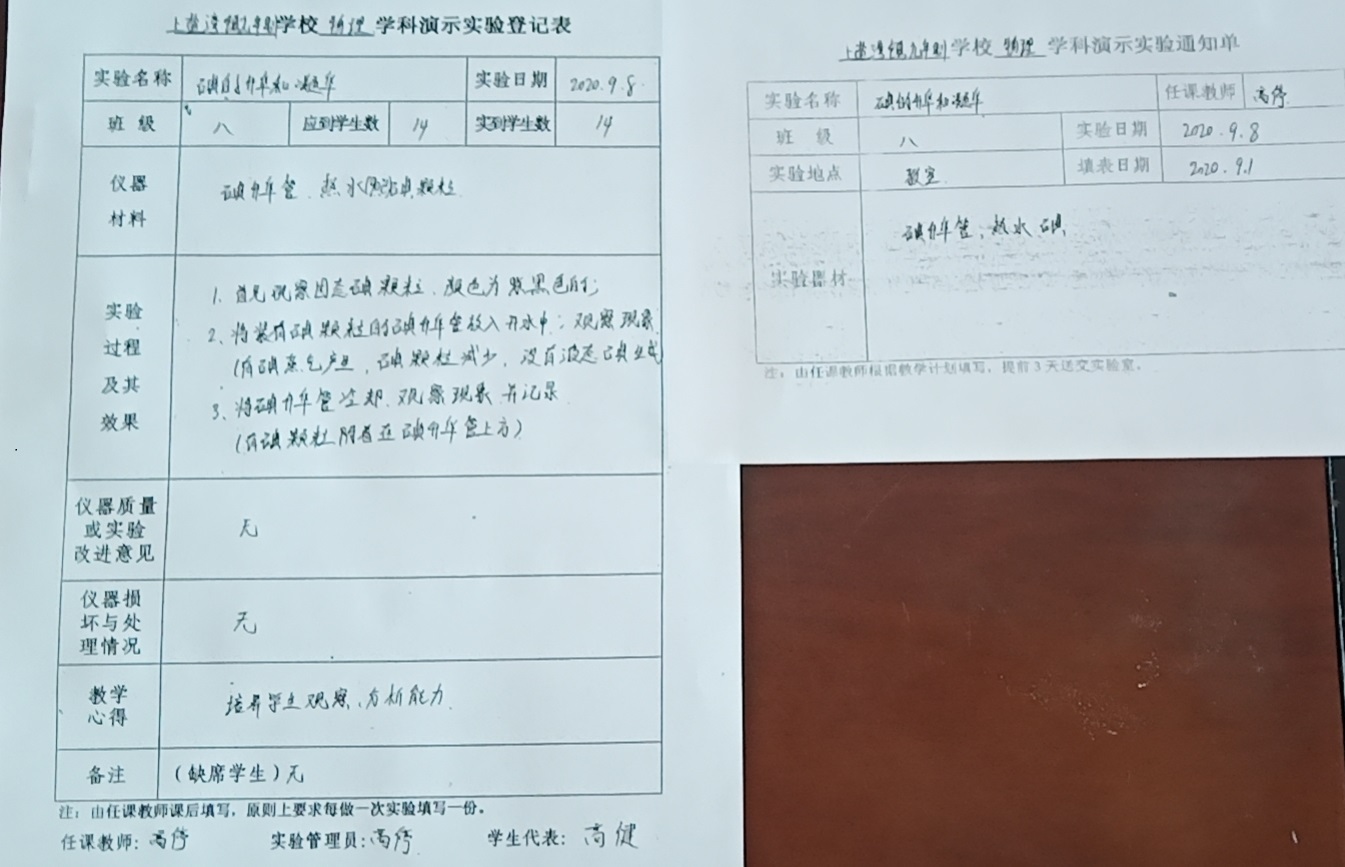 学校 物理 学科演示实验登记表
实验名称 碘的升华和凝华 实验日期 2020.9.8.
班 级 八 应到学生数 14 实到学生数 14
仪器
材料
碘升华管、热水 碘颗粒
实验
过程
及其
效果
1、首先观察固态碘颗粒、颜色为紫黑色的;
2、将装有碘颗粒的碘升华管放入开水中;观察现象
(有碘蒸气产生,碘颗粒减少,没有液态碘生成
3、将碘升华管冷却、观察现象并记录
(有碘颗粒附着在碘升华管上方)
仪器质量
或实验
改进意见
无
仪器损
坏与处
理情况
无
教学
心得
培养学生观察、分析能力.
备注 (缺席学生)无
注:由任课教师课后填写,原则上要求每做一次实验填写一份。
任课教师:高 实验管理员:高 学生代表:高健
学校 物理 学科演示实验通知单
实验名称 碘的升华和凝华 任课教师 高
班 级 八 实验日期 2020.9.8
实验地点 教室 填表日期 2020.9.1
实验器材 碘升华管、热水 碘
注:由任课教师根据教学计划填写,提前3天送交实验室。